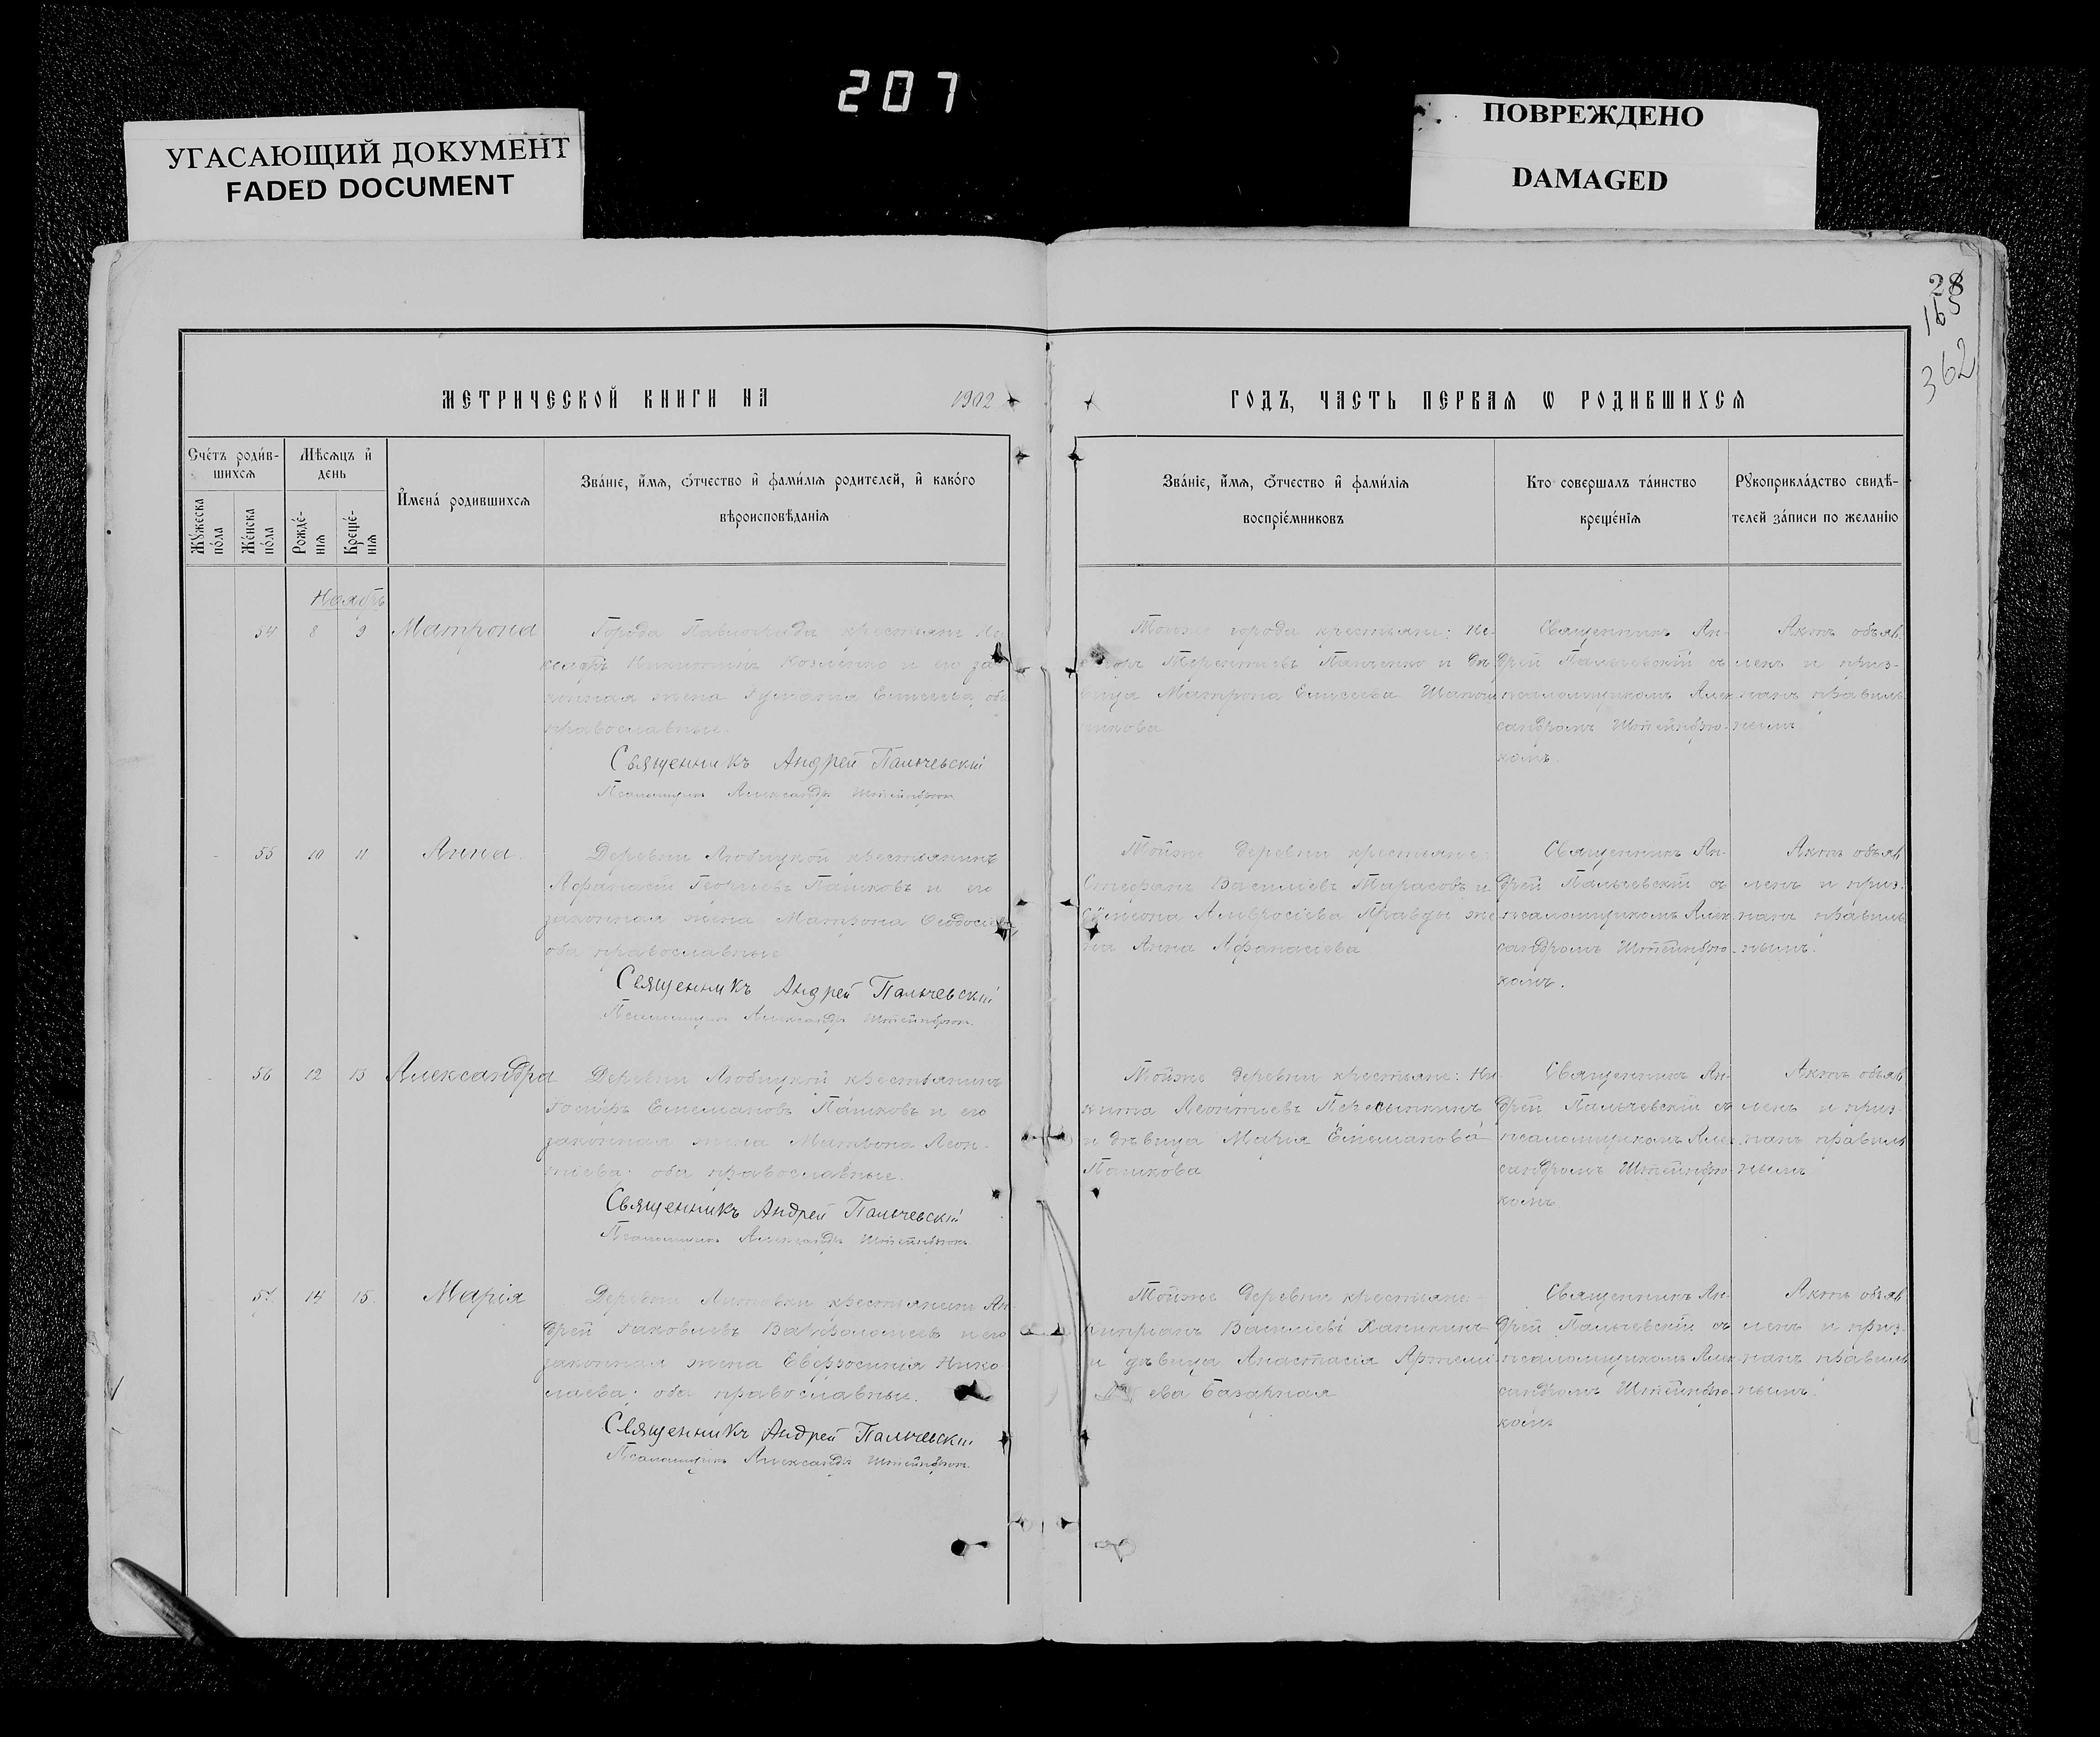 207
УГАСАЮЩИЙ ДОКУМЕНТ
FADED DOCUMENT
ПОВРЕЖДЕНО
DAMAGED
28
165
362
МЕТРИЧЕСКОЙ КНИГИ НА 1902
ГОДЪ, ЧАСТЬ ПЕРВАѦ Ѡ РОДИВШИХСѦ
Счéтъ роди́в-
шихсѧ
Мѣсѧцъ и҆
день
И҆мена́ родившихсѧ
Зва́нїе, и҆́мѧ, ѻ҆́тчество и҆ фами́лїѧ родителей, и҆ како́го
вѣроисповѣ́данїѧ
Мꙋ́жеска
по́ла
Же́нска
по́ла
Рожде́-
нїѧ
Креще́-
нїѧ
Зва́нїе, и҆́мѧ, ѻ҆́тчество и҆ фами́лїѧ
воспрїе́мниковъ
Кто совершалъ та́инство
креще́нїѧ
Рꙋкоприкла́дство свидѣ́-
телей за́писи по желанїю
Ноябрь
54 8 9 Матрона
Города Павлограда
законная жена Елисеева, оба
православные.
Священникъ Андрей Пальчевскій
Псаломщикъ Александръ Штейнбрюк
Того же города крестьяне: Ни-
Терентіевъ Панченко и дѣ-
вица Матрона Елисеева
Священникъ Ан-
дрей Пальчевскій съ
псаломщикомъ Алек-
сандромъ Штейнбрю-
комъ.
Актъ объяв-
ленъ и приз-
нанъ правиль-
нымъ
55 10 11 Анна.
Деревни Любицкой крестьянинъ
Афанасій Георгіевъ Пашковъ и его
законная жена Матрона Феодосіева,
оба православные
Священникъ Андрей Пальчевскій
Псаломщикъ Александръ Штейнбрюк.
Тойже деревни крестьяне:
Стефанъ Василіевъ Тарасовъ и
Симеона Амвросіева Правды же-
на Анна Афанасіева
Священникъ Ан-
дрей Пальчевскій съ
псаломщикомъ Алек-
сандромъ Штейнбрю-
комъ.
Актъ объяв-
ленъ и приз-
нанъ правиль-
нымъ.
56 12 13 Александра
Деревни Любицкой крестьянинъ
Емеліановъ Пашковъ и его
законная жена Матрона Леон-
тіева; оба православные.
Священникъ Андрей Пальчевскій
Псаломщикъ Александръ Штейнбрюкъ
Тойже деревни крестьяне: Ни-
кита Леонтіевъ Пересыпкинъ
и дѣвица Марія Емеліанова
Пашкова
Священникъ Ан-
дрей Пальчевскій съ
псаломщикомъ Алек-
сандромъ Штейнбрю-
комъ
Актъ объяв-
ленъ и приз-
нанъ правиль-
нымъ
57 14 15 Марія
Деревни Литовки крестьянинъ Ан-
дрей Іаковлевъ Варфоломеевъ и его
законная жена Евфросинія Нико-
лаева; оба православные.
Священникъ Андрей Пальчевскій
Псаломщикъ Александръ Штейнбрюк.
Тойже деревни крестьяне:
Кипріанъ Василіевъ Каныкинъ
и дѣвица Анастасія Артеми-
ева Базарная
Священникъ Ан-
дрей Пальчевскій съ
псаломщикомъ Алек-
сандромъ Штейнбрю-
комъ
Актъ объяв-
ленъ и приз-
нанъ правиль-
нымъ.